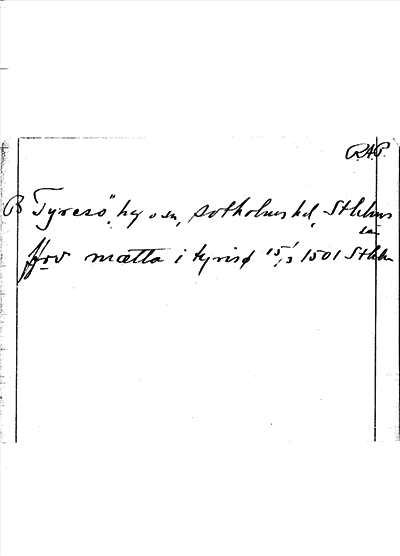 RAP.
B Tyresö, hg o sn, Sotholms hd, Sthlms
län
ffrv mætta i tyrisø 15/3 1501 Sthlm